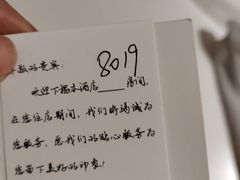 敬的贵宾:
8019
欢迎下榻本酒店____房间,
在您住店期间,我们将竭诚为
您服务,愿我们的贴心服务为
您留下美好的印象!